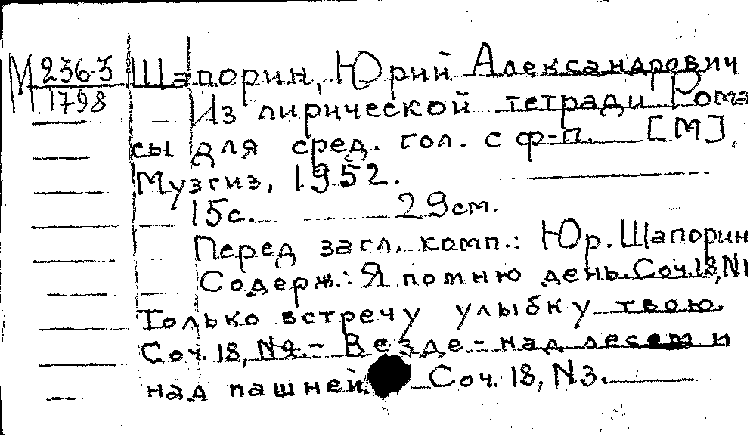 М 236-3
1798
Шапорин, Юрий Александрович
Из лирической тетради Рома
сы для сред. гол. с ф-п. [М],
Музгиз, 1952.
15с. 29см.
Перед загл. комп.: Юр. Шапорин
Содерж.: Я помню день. Соч.18,N1
Только встречу улыбку твою.
Соч. 18, N2.- Везде - над лесом и
над пашней. Соч. 18, N3.